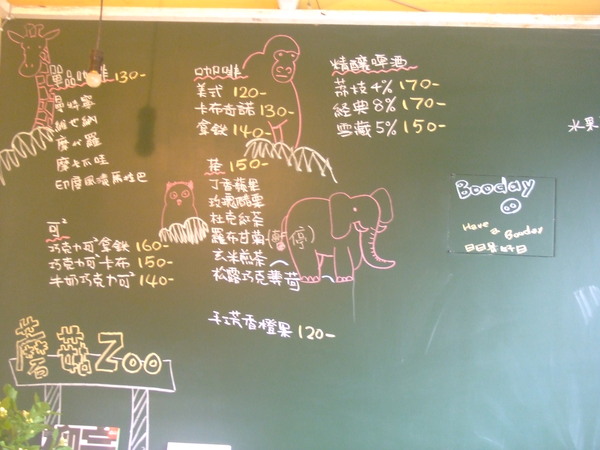 單品咖啡 130-
曼特寧
維也納
摩卡爪哇
印度風漬馬哈巴
可²
巧克力可²拿鐵 160-
巧克力可²卡布 150-
牛奶巧克力可² 140-
咖啡
美式 120-
卡布奇諾 130-
拿鐵 140-
茶 150-
丁香蘋果
玫瑰
杜克紅茶
羅布甘菊(暫停)
玄米煎茶
松露巧克薄荷
香橙果 120-
精釀啤酒
荔枝 4% 170-
經典 8% 170-
雪藏 5% 150-
水果
Booday
Have
a Booday
日日好日
蘑菇Zoo